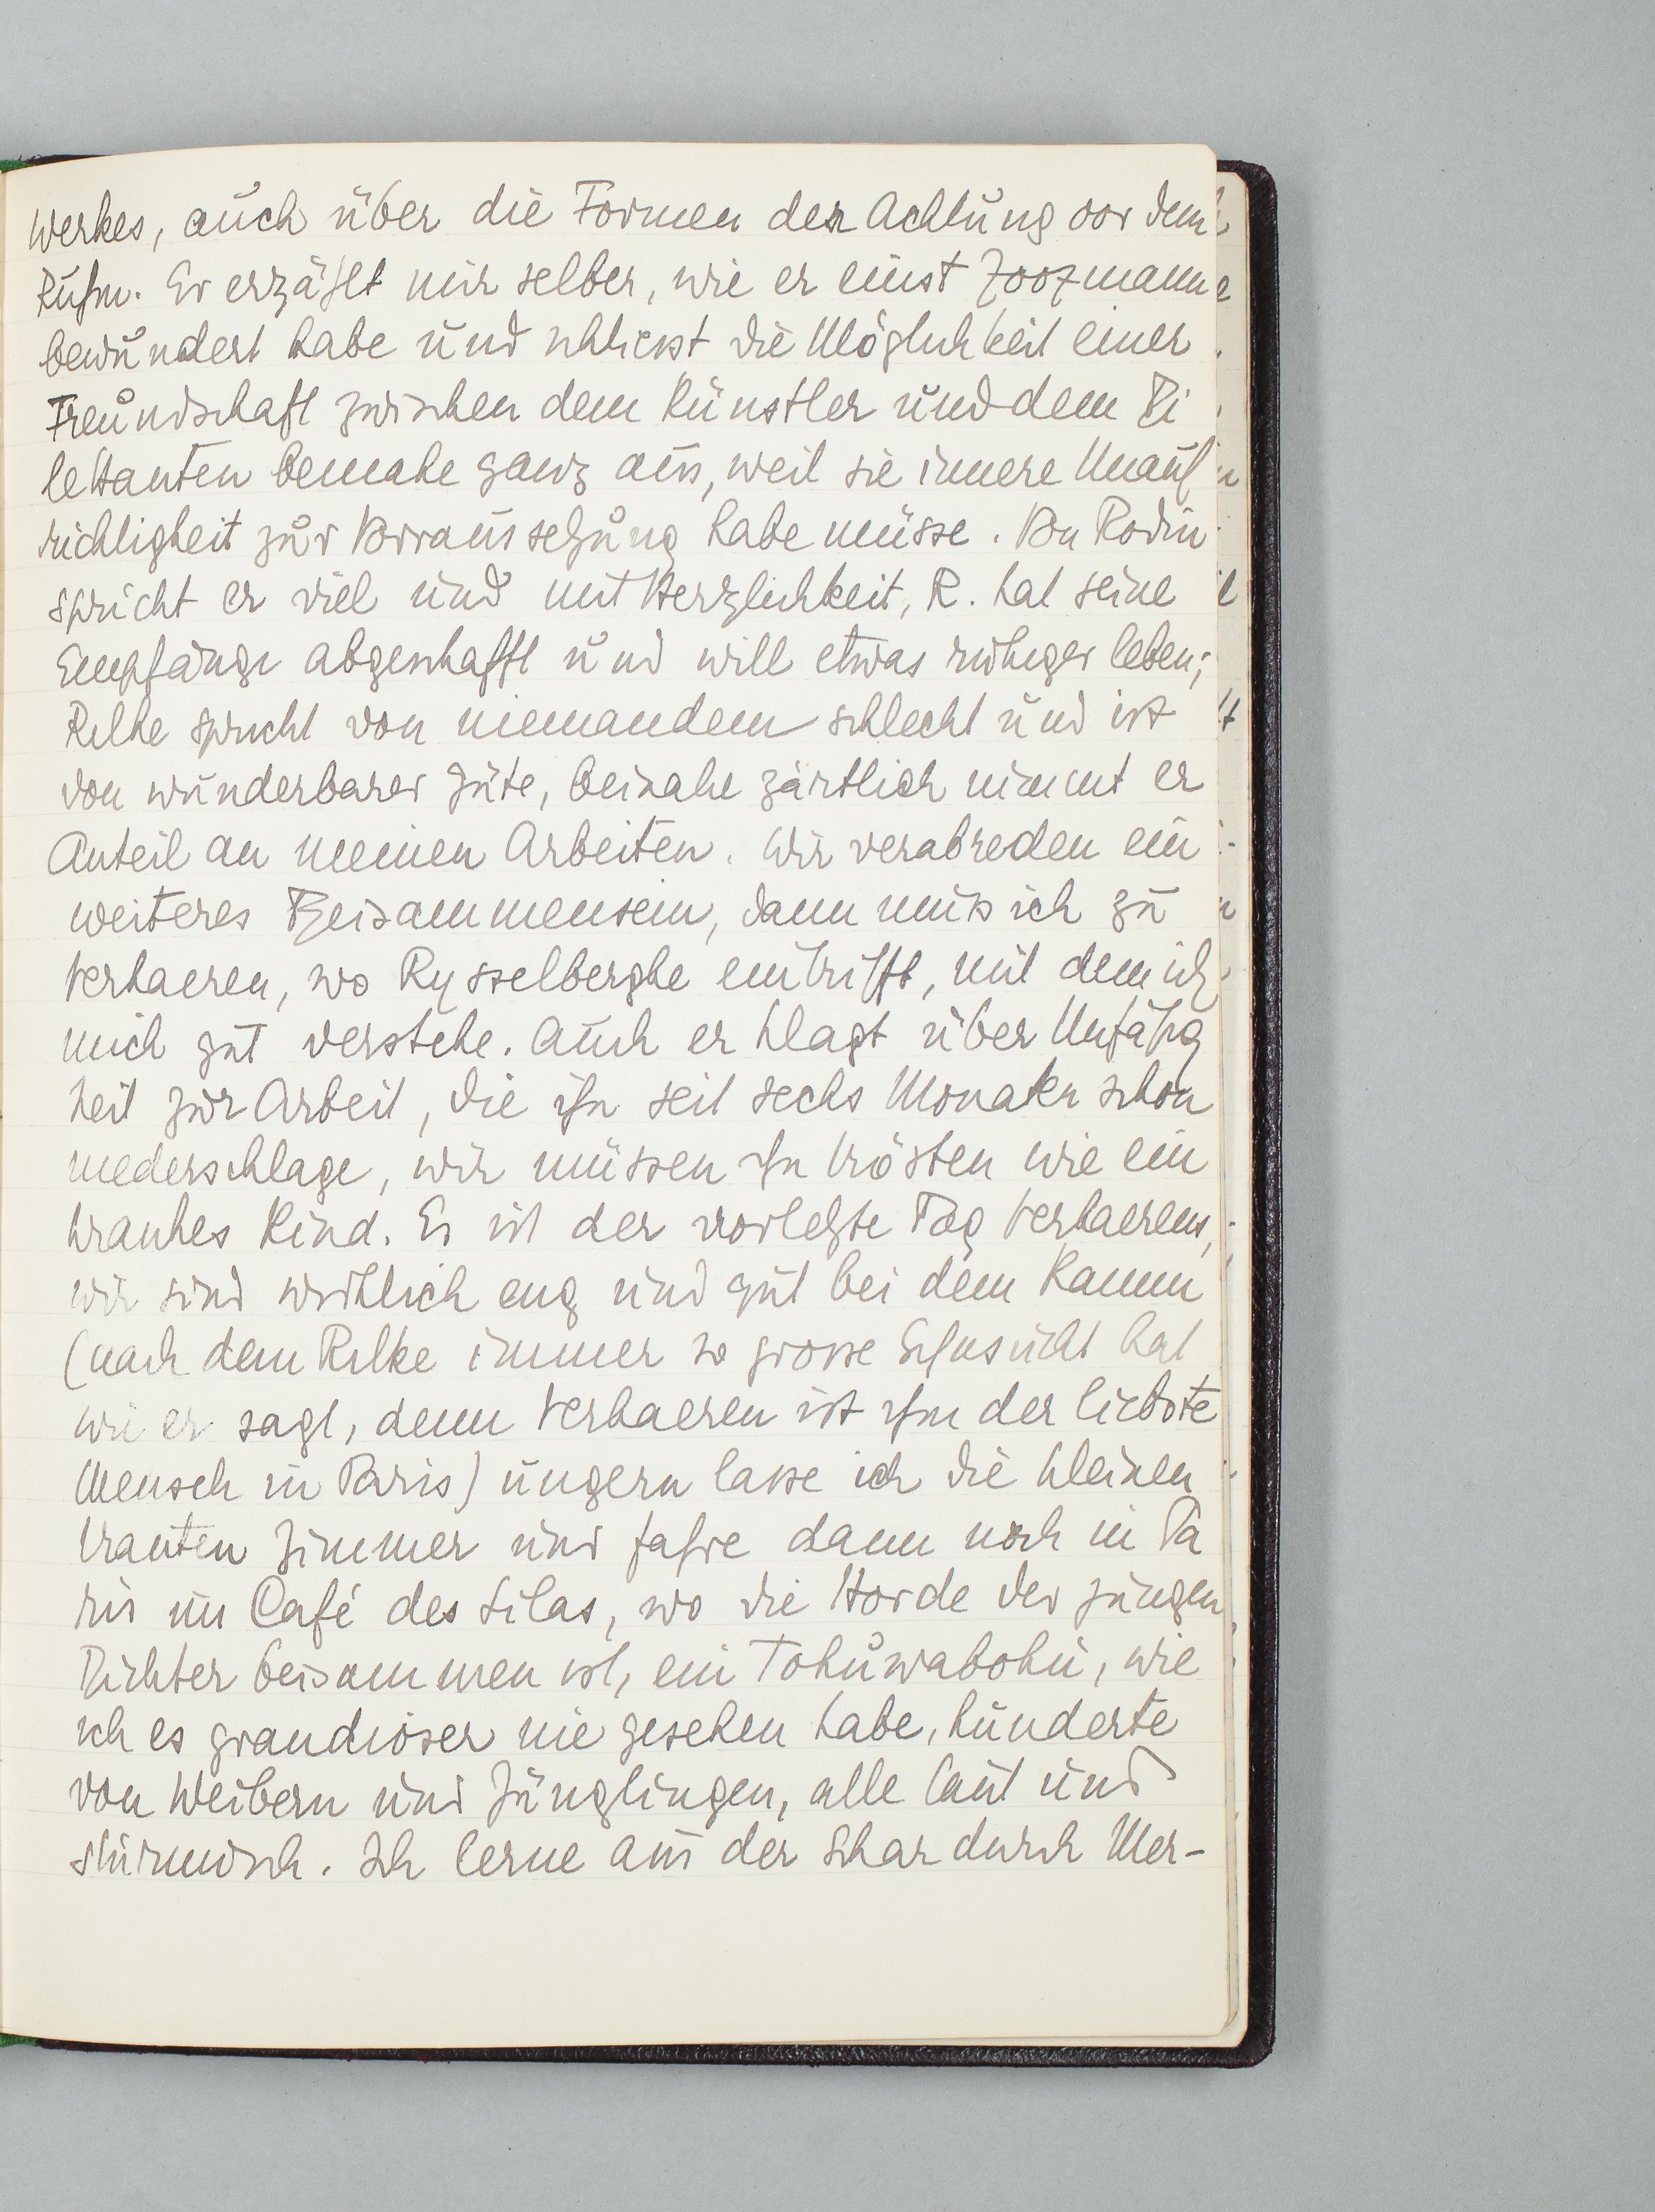 Werkes, auch über die Formen der Achtung vor dem
Ruhm. Er erzählt mir selber, wie er einst Zoozmann
bewundert habe und schliesst die Möglichkeit einer
Freundschaft zwischen dem Künstler und dem Di
lettanten beinahe ganz aus, weil sie innere Unauf
richtigkeit zur Vorraussetzung habe müsse. Von Rodin
spricht er viel und mit Herzlichkeit, R. hat seine
Empfänge abgeschafft und will etwas ruhiger leben;
Rilke spricht von niemandem schlecht und ist
von wunderbarer Güte, beinahe zärtlich nimmt er
Anteil an meinen Arbeiten. Wir verabreden ein
weiteres Beisammensein, dann muss ich zu
Verhaeren, wo Rysselberghe eintrifft, mit dem ich
mich gut verstehe. Auch er klagt über Unfähig
keit zur Arbeit, die ihn seit sechs Monaten schon
niederschlage, wir müssen ihn trösten wie ein
krankes Kind. Es ist der vorletzte Tag Verhaerens,
wir sind wirklich eng und gut bei dem Kamin
(nach dem Rilke immer so grosse Sehnsucht hat
wie er sagt, denn Verhaeren ist ihm der liebste
Mensch in Paris) ungern lasse ich die kleinen
trauten Zimmer und fahre dann noch in Pa
ris ins Café des Lilas, wo die Horde der jungen
Dichter beisammen ist, ein Tohuwabohu, wie
ich es grandioser nie gesehen habe, hunderte
von Weibern und Jünglingen, alle laut und
stürmisch. Ich lerne aus der Schar durch Mer-